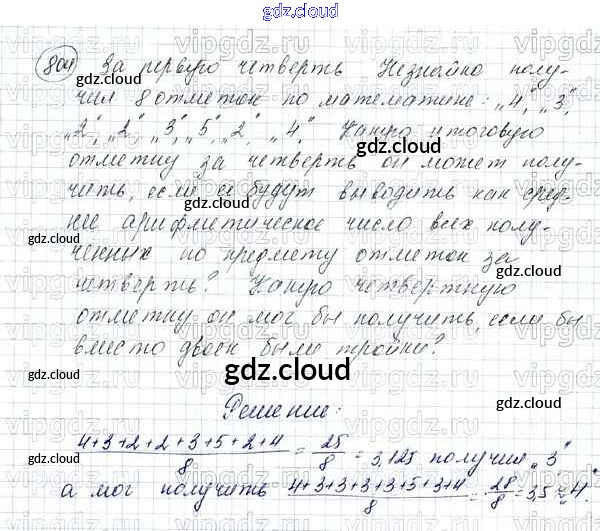 gdz.cloud
804 За первую четверть Незнайка полу-
чил 8 отметок по математике: „4", „3",
„2", „2", „3", „5", „2", „4". Какую итоговую
отметку за четверть он может полу-
чить, если её будут выводить как сред-
нее арифметическое число всех полу-
ченных по предмету отметок за
четверть? Какую четвертную
отметку он мог бы получить, если бы
вместо двоек были тройки?
gdz.cloud
Решение:
4+3+2+2+3+5+2+4/8 = 25/8 = 3,125 получил „3"
а мог получить 4+3+3+3+3+5+3+4/8 = 28/8 = 3,5 ≈ „4".